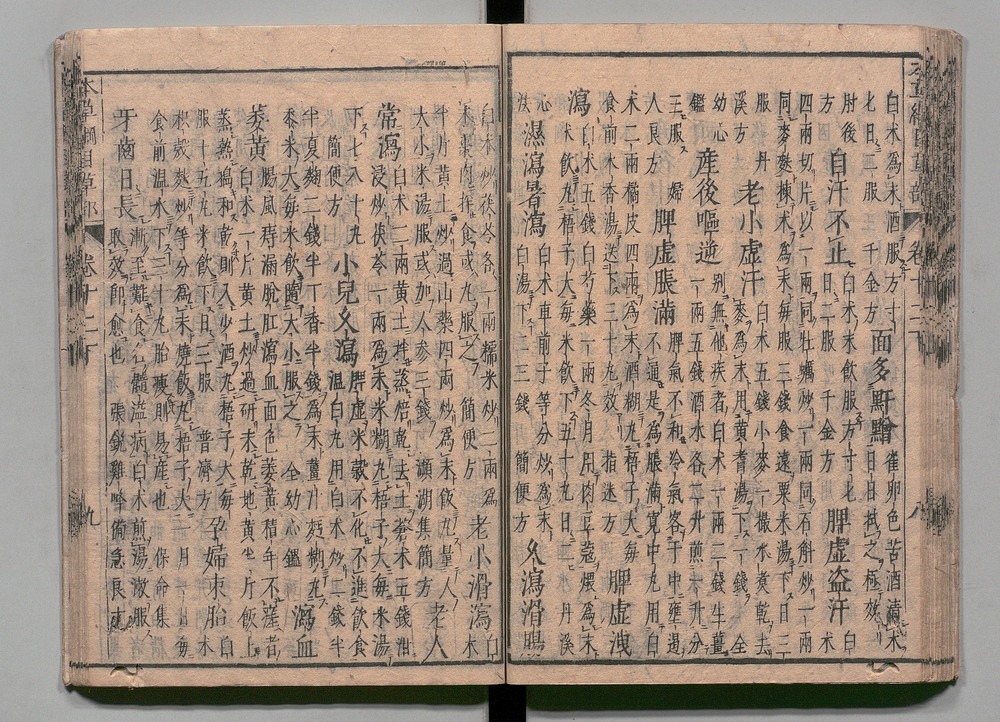 白朮為末酒服方寸
七日三服　千金方　面多䵟䵳　雀卵色苦酒漬朮
肘後方　自汗不止　白朮末飲服方寸匕
日二服　千金方　脾虛盜汗　白朮
四兩切片以一兩同黃耆炒一兩同牡蠣炒一兩同石斛炒一兩
同麥麩炒揀朮為末每服三錢食遠粟米湯下日三
服　丹溪方　老小虛汗　白朮五錢小麥一撮水煑乾去
麥為末用黃耆湯下一錢　全
幼心鑑　產後嘔逆　別無他疾者白朮一兩二錢生薑
一兩五錢酒水各二升煎一升分
三服　婦人良方　脾虛脹滿　脾氣不和冷氣客于中壅遏
不通是為脹滿寬中丸用白
朮二兩橘皮四兩為末酒糊丸梧子大每
食前木香湯送下三十丸效　指迷方　脾虛洩
瀉　白朮五錢白芍藥一兩冬月用肉豆蔻煨為末
米飯丸梧子大每米飲下五十丸日二　丹溪
心法　濕瀉暑瀉　白朮車前子等分炒為末
白湯下二三錢　簡便方　久瀉滑腸
白朮炒茯苓各一兩糯米炒二兩為
末棗肉拌食或丸服之　簡便方　老小滑瀉　白朮
半斤黃土炒過山藥四兩炒為末飯丸量人
大小米湯服或加人參三錢　瀕湖集簡方　老人
常瀉　白朮二兩黃土拌蒸焙乾去土蒼朮五錢泔
浸炒茯苓一兩為末米糊丸梧子大每米湯
下七八十丸　簡便方　小兒久瀉　脾虛米穀不化不進飲食
溫白丸用白朮炒二錢半
半夏麴二錢半丁香半錢為末薑汁麪糊丸
黍米大每米飲隨大小服之　全幼心鑑　瀉血
萎黃　腸風痔漏脫肛瀉血面色萎黃積年不瘥者
白朮一斤黃土炒過研末乾地黃半斤飯上
蒸熟搗和乾則入少酒丸梧子大每
服十五丸米飲下日三服　普濟方　孕婦束胎　白朮
枳殼麩炒等分為末燒飯丸梧子大入月一日每
食前溫水下三十丸胎瘦則易產也　保命集
牙齒日長　漸至難食名髓溢病白朮煎湯漱服
取效即愈也　張銳雞峰備急良方
本草綱目草部　卷十二下　九